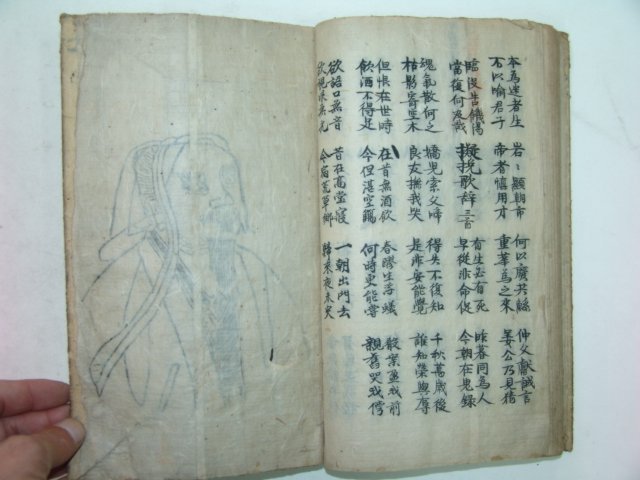 本為迷者生 岩〻顯朝市 何以廢共鯀 仲父獻誠言
不以喻君子 帝者慎用才 重華為之來 姜公乃見猜
臨没告饑渴 擬挽歌辞三首 有生必有死 昨暮同為人
當復何及哉 早從非命促 今朝在鬼錄
魂氣散何之 嬌兒索父啼 得失不復知 千秋萬歲後
枯影寄空木 良友撫我哭 是非安能覺 誰知榮與辱
但恨在世時 在昔無酒飲 春醪生浮蟻 殽案盈我前
飲酒不得足 今但湛空觴 何時更能嘗 親舊哭我傍
欲語口無音 昔在高堂寢 一朝出門去
欲視眼無光 今宿荒草鄉 歸來夜未央